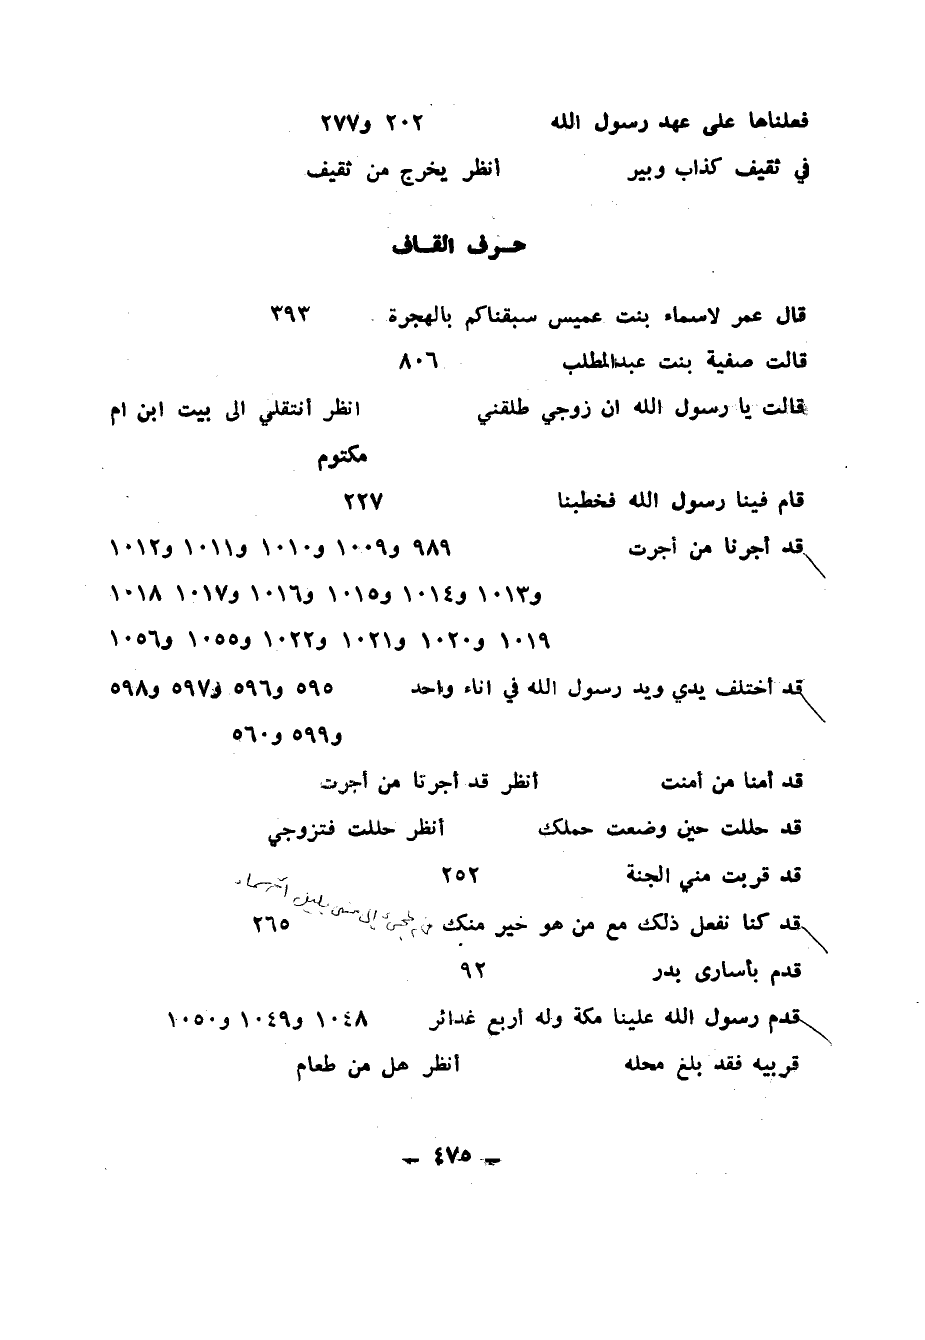 فعلناها على عهد رسول الله ٢٠٢ و٢٧٧
في ثقيف كذاب وبير أنظر يخرج من ثقيف
حرف القاف
قال عمر لاسماء بنت عميس سبقناكم بالهجرة ٣٩٣
قالت صفية بنت عبدالمطلب ٨٠٦
قالت يا رسول الله ان زوجي طلقني انظر أنتقلي الى بيت ابن ام
مكتوم
قام فينا رسول الله فخطبنا ٢٢٧
قد أجرنا من أجرت ٩٨٩ و١٠٠٩ و١٠١٠ و١٠١١ و١٠١٢
و١٠١٣ و١٠١٤ و١٠١٥ و١٠١٦ و١٠١٧ ١٠١٨
١٠١٩ و١٠٢٠ و١٠٢١ و١٠٢٢ و١٠٥٥ و١٠٥٦
قد أختلف يدي ويد رسول الله في اناء واحد ٥٩٥ و٥٩٦ و٥٩٧ و٥٩٨
و٥٩٩ و٥٦٠
قد أمنا من أمنت أنظر قد أجرتا من أجرت
قد حللت حين وضعت حملك أنظر حللت فتزوجي
قد قربت مني الجنة ٢٥٢
قد كنا نفعل ذلك مع من هو خير منك ٢٦٥
قدم بأسارى بدر ٩٢
قدم رسول الله علينا مكة وله أربع غدائر ١٠٤٨ و١٠٤٩ و١٠٥٠
قربيه فقد بلغ محله أنظر هل من طعام
– ٤٧٥ –